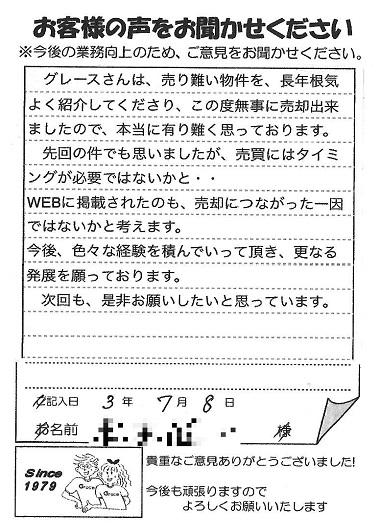 お客様の声をお聞かせください
※今後の業務向上のため、ご意見をお聞かせください。
グレースさんは、売り難い物件を、長年根気
よく紹介してくださり、この度無事に売却出来
ましたので、本当に有り難く思っております。
先回の件でも思いましたが、売買にはタイミ
ングが必要ではないかと・・
WEBに掲載されたのも、売却につながった一因
ではないかと考えます。
今後、色々な経験を積んでいって頂き、更なる
発展を願っております。
次回も、是非お願いしたいと思っています。
ご記入日 3 年 7 月 8 日
お名前 様
Since
1979
Grace
Grace
貴重なご意見ありがとうございました!
今後も頑張りますので
よろしくお願いいたします